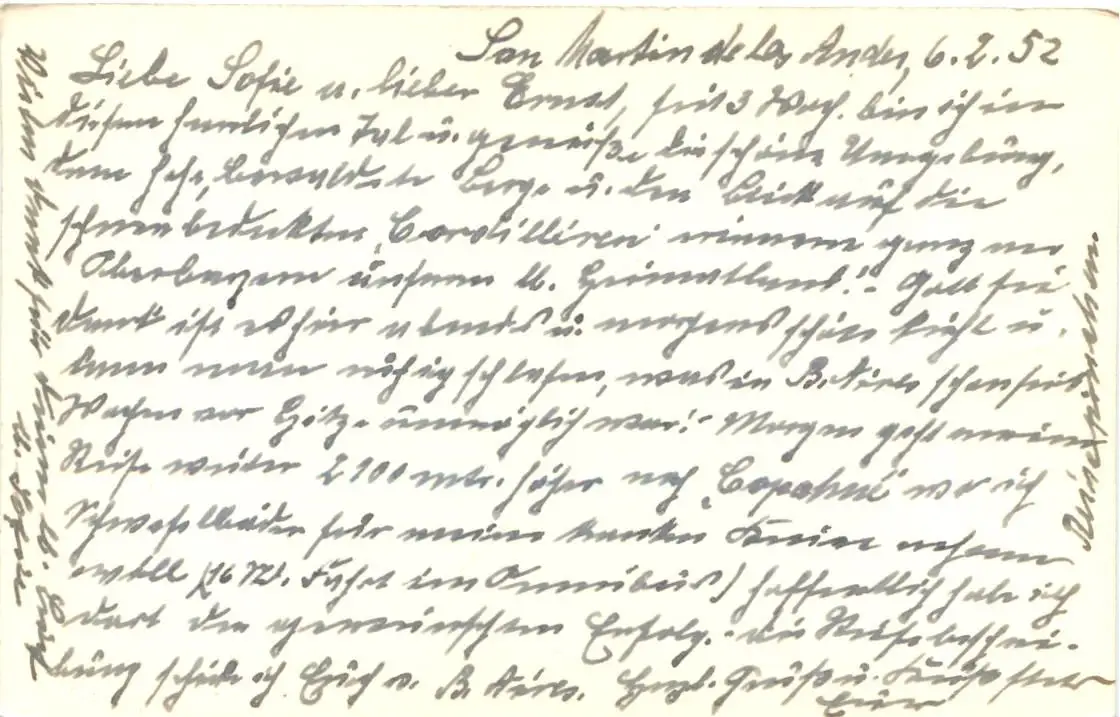 San Martin de los Andes, 6.2.52
Liebe Sofie u. lieber Ernst, seit 3 Woch. bin ich in
diesem herrlichen Tal u. genieße die schöne Umgebung,
dem hohe, bewaldete Berge u. den Blick auf die
schneebedeckten "Cordilleren" erinnern ganz an
Oberbayern unserm lb. Heimatland! - Gott sei
dank ist es hier abends u. morgens schön kühl u.
kann man ruhig schlafen, was in B. Aires schon seit
Wochen vor Hitze unmöglich war! - Morgen geht meine
Reise weiter 2100 mtr. höher nach "Copahué" wo ich
Schwefelbäder für meine kranken Kniee nehmen
will (16 Std. Fahrt im Omnibus) hoffentlich habe ich
dort den gewünschten Erfolg. - die Reisebeschrei-
bung schicke ich Euch v. B. Aires. Herzl. Grüße u. Küsse
Euer
Vielen Dank für Deinen lb. Brief
lb. Sofie